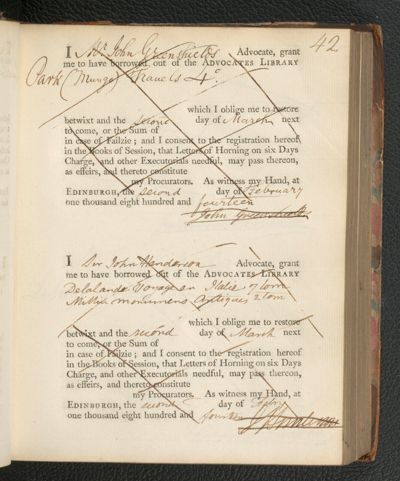 42
I Mr. John Greenshields Advocate, grant
me to have borrowed out of the ADVOCATES LIBRARY
Park (Mungo) Travels 4o.
which I oblige me to restore
betwixt and the second day of March next
to come, or the Sum of
in case of Failzie; and I consent to the registration hereof
in the Books of Session, that Letters of Horning on six Days
Charge, and other Executorials needful, may pass thereon,
as effeirs, and thereto constitute
my Procurators. As witness my Hand, at
EDINBURGH, the second day of February
one thousand eight hundred and fourteen
John Greenshields
I Sir John Henderson Advocate, grant
me to have borrowed out of the ADVOCATES LIBRARY
Delalande Voyage en Italie 9 tom
Millin monumens Antiques 2 tom
which I oblige me to restore
betwixt and the second day of March next
to come, or the Sum of
in case of Failzie; and I consent to the registration hereof
in the Books of Session, that Letters of Horning on six Days
Charge, and other Executorials needful, may pass thereon,
as effeirs, and thereto constitute
my Procurators. As witness my Hand, at
EDINBURGH, the second day of
one thousand eight hundred and fourteen